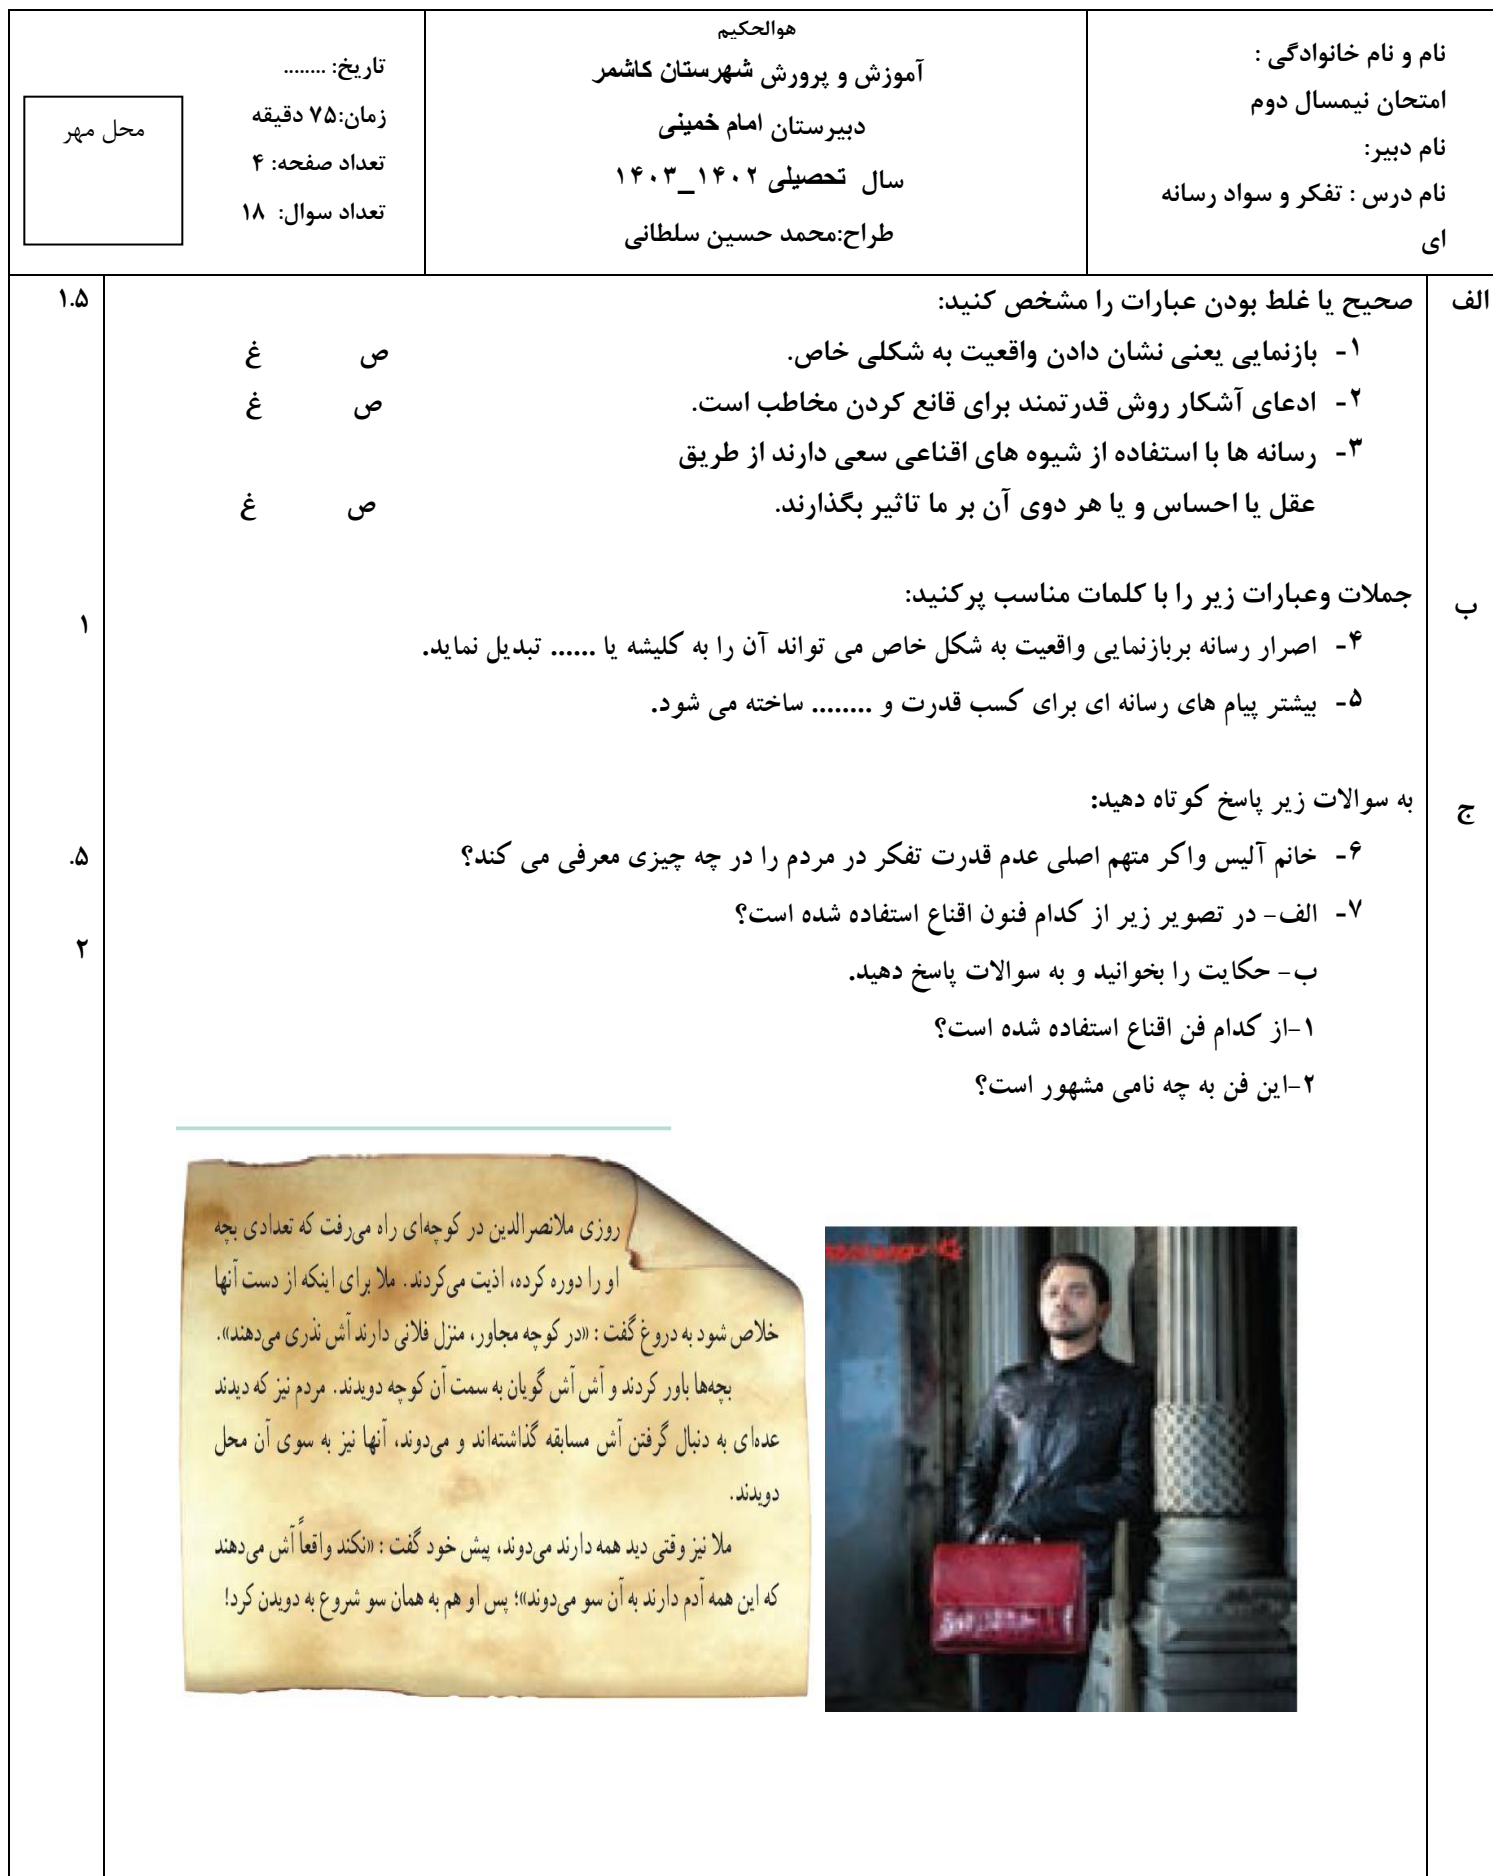 هوالحکیم
نام و نام خانوادگی :
امتحان نیمسال دوم
نام دبیر:
نام درس : تفکر و سواد رسانه
ای
آموزش و پرورش شهرستان کاشمر
دبیرستان امام خمینی
سال تحصیلی ۱۴۰۲_۱۴۰۳
طراح:محمد حسین سلطانی
تاریخ: ........
زمان:۷۵ دقیقه
تعداد صفحه: ۴
تعداد سوال: ۱۸
محل مهر
الف صحیح یا غلط بودن عبارات را مشخص کنید: ۱.۵
۱- بازنمایی یعنی نشان دادن واقعیت به شکلی خاص. ص غ
۲- ادعای آشکار روش قدرتمند برای قانع کردن مخاطب است. ص غ
۳- رسانه ها با استفاده از شیوه های اقناعی سعی دارند از طریق
عقل یا احساس و یا هر دوی آن بر ما تاثیر بگذارند. ص غ
ب جملات وعبارات زیر را با کلمات مناسب پرکنید: ۱
۴- اصرار رسانه بربازنمایی واقعیت به شکل خاص می تواند آن را به کلیشه یا ...... تبدیل نماید.
۵- بیشتر پیام های رسانه ای برای کسب قدرت و ........ ساخته می شود.
ج به سوالات زیر پاسخ کوتاه دهید:
۶- خانم آلیس واکر متهم اصلی عدم قدرت تفکر در مردم را در چه چیزی معرفی می کند؟ .۵
۷- الف- در تصویر زیر از کدام فنون اقناع استفاده شده است؟
۲
ب- حکایت را بخوانید و به سوالات پاسخ دهید.
۱-از کدام فن اقناع استفاده شده است؟
۲-این فن به چه نامی مشهور است؟
روزی ملانصرالدین در کوچه‌ای راه می‌رفت که تعدادی بچه
او را دوره کرده، اذیت می‌کردند. ملا برای اینکه از دست آنها
خلاص شود به دروغ گفت : «در کوچه مجاور، منزل فلانی دارند آش نذری می‌دهند».
بچه‌ها باور کردند و آش آش گویان به سمت آن کوچه دویدند. مردم نیز که دیدند
عده‌ای به دنبال گرفتن آش مسابقه گذاشته‌اند و می‌دوند، آنها نیز به سوی آن محل
دویدند.
ملا نیز وقتی دید همه دارند می‌دوند، پیش خود گفت : «نکند واقعاً آش می‌دهند
که این همه آدم دارند به آن سو می‌دوند»؛ پس او هم به همان سو شروع به دویدن کرد!